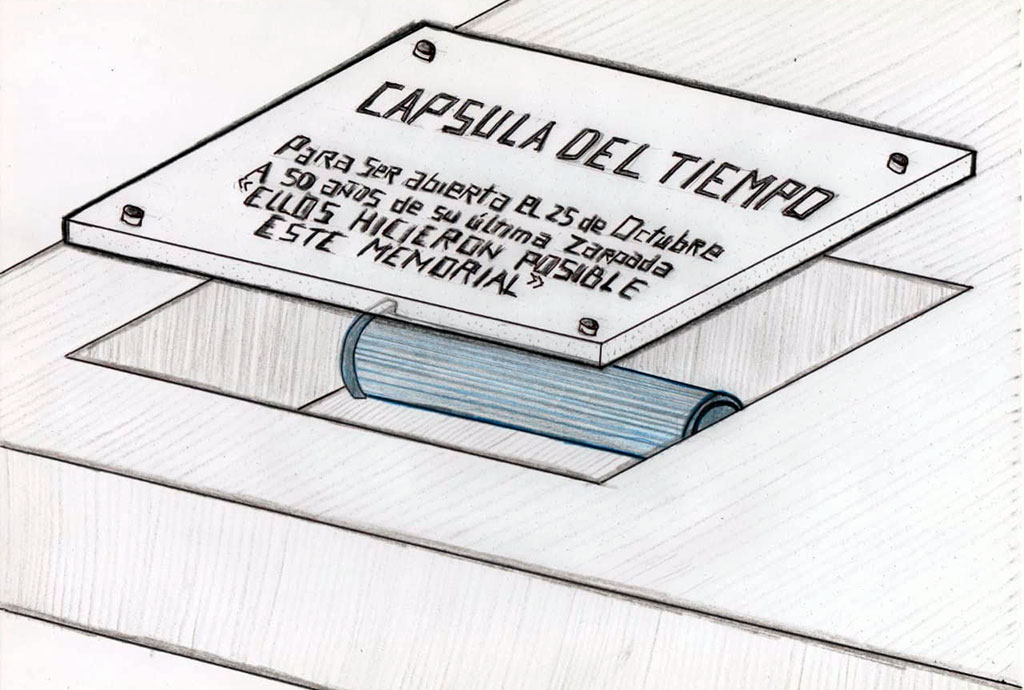 CAPSULA DEL TIEMPO
Para ser abierta el 25 de Octubre
A 50 años de su última Zarpada
“ELLOS HICIERON POSIBLE
ESTE MEMORIAL”